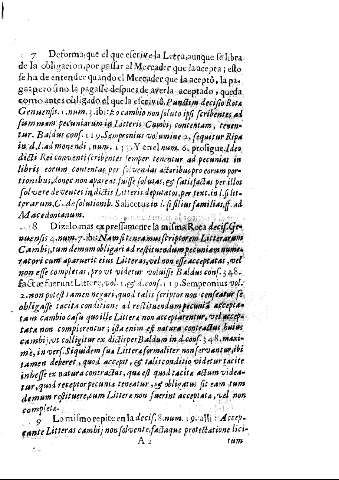 7 Deforma que el que escrive la Letra, aunque se libra
de la obligacion, por passar al Mercader que la acepta; esto
se ha de entender quando el Mercader que la aceptò, la pa-
gas pero si no la pagasse despues de averla aceptado, queda
como antes obligado el que la escriviò. Punctim decisio Rota
Genuensis. 1. num. 3. ibi: Eo cambio non soluto ipsi scribentes, ad
summam pecuniarum in Litteris Cambij contentam, tenen-
tur. Baldus cons. 119. Sempronius volumine 2. sequitur Ripa
in d. l. ad monendi, num. 155. Y en el num. 6. prosigue. Idea
dicti Rei conventi scribentes semper tenentur ad pecunias in
libris eorum contentas per solvendas actoribus pro eorum por-
tionibus, donec non apparent fuisse solutas, & satisfactas per illos
solvere deventes in dictis Litteris deputatos, per text. in l. si lit-
terarum. C. de solutionib. Salicetus in l. si filius familias, ff. ad
Macedonianum.
8 Dizelo mas expressamente la misma Rota decis. Ge-
nuensis 4. num. 7. ibi: Nam si tenemus scriptorem Litterarum
Cambij, tum demum obligari ad restituendum pecuniam nume-
ratori cum apparuerit eius Litteras, vel non esse acceptatas, vel
non esse completas, pro ut videtur voluisse Baldus cons. 348.
factæ fuerunt Litteræ, vol. 1. & d. cons. 119. Sempronius vol.
2. non potest tamen negari, quod talis scriptor non censeatur se
obligasse tacita conditione; ad restituendum pecuniã accepta-
tam cambio casu quo ille Littera non acceptarentur, vel accep-
tatæ non complerentur; ista enim est natura contractus huius
cambij, vt colligitur ex dictis per Baldum in d. cons. 348. maxi-
mè, in vers. Siquidem sua Littera formaliter non servantur, ibi
tamen deberet, quod accepit, & talis conditio videtur tacitè
inhesse ex natura contractus, quia est quod tacitè actum videa-
tur, quod receptor pecuniæ teneatur, & obligatus sit eam tum
demum restituere, cum Littera non fuerint acceptatæ, vel non
completæ.
9 Lo mismo repite en la decis. 8. num. 19. alli: Accep-
tante Litteras cambij non solvente, factaque protestatione lici-
A 2 tum